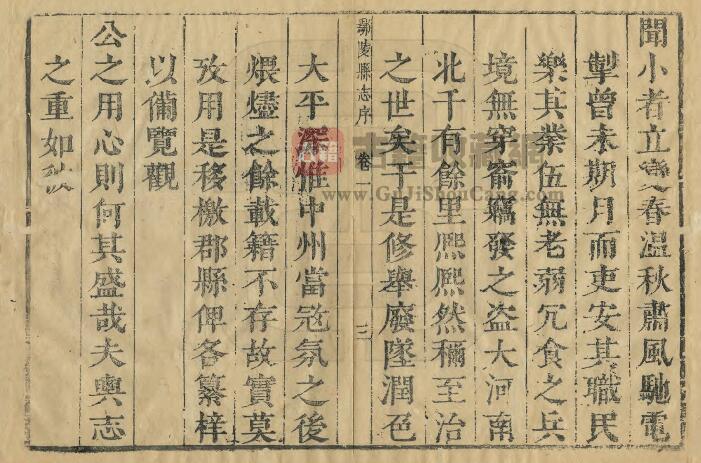 聞小者立變春温秋肅風馳電
掣曾未期月而吏安其職民
樂其業伍無老弱冗食之兵
境無穿窬竊發之盜大河南
北千有餘里熈熈然稱至治
之世矣于是修舉廢墜潤色
鄢陵縣志序 卷一 三
大平深惟中州當宼氛之後
煨燼之餘載籍不存故實莫
攷用是移檄郡縣俾各纂梓
以備覽觀
公之用心則何其盛哉夫輿志
之重如
古籍收藏網
www.GuJiShouCang.com